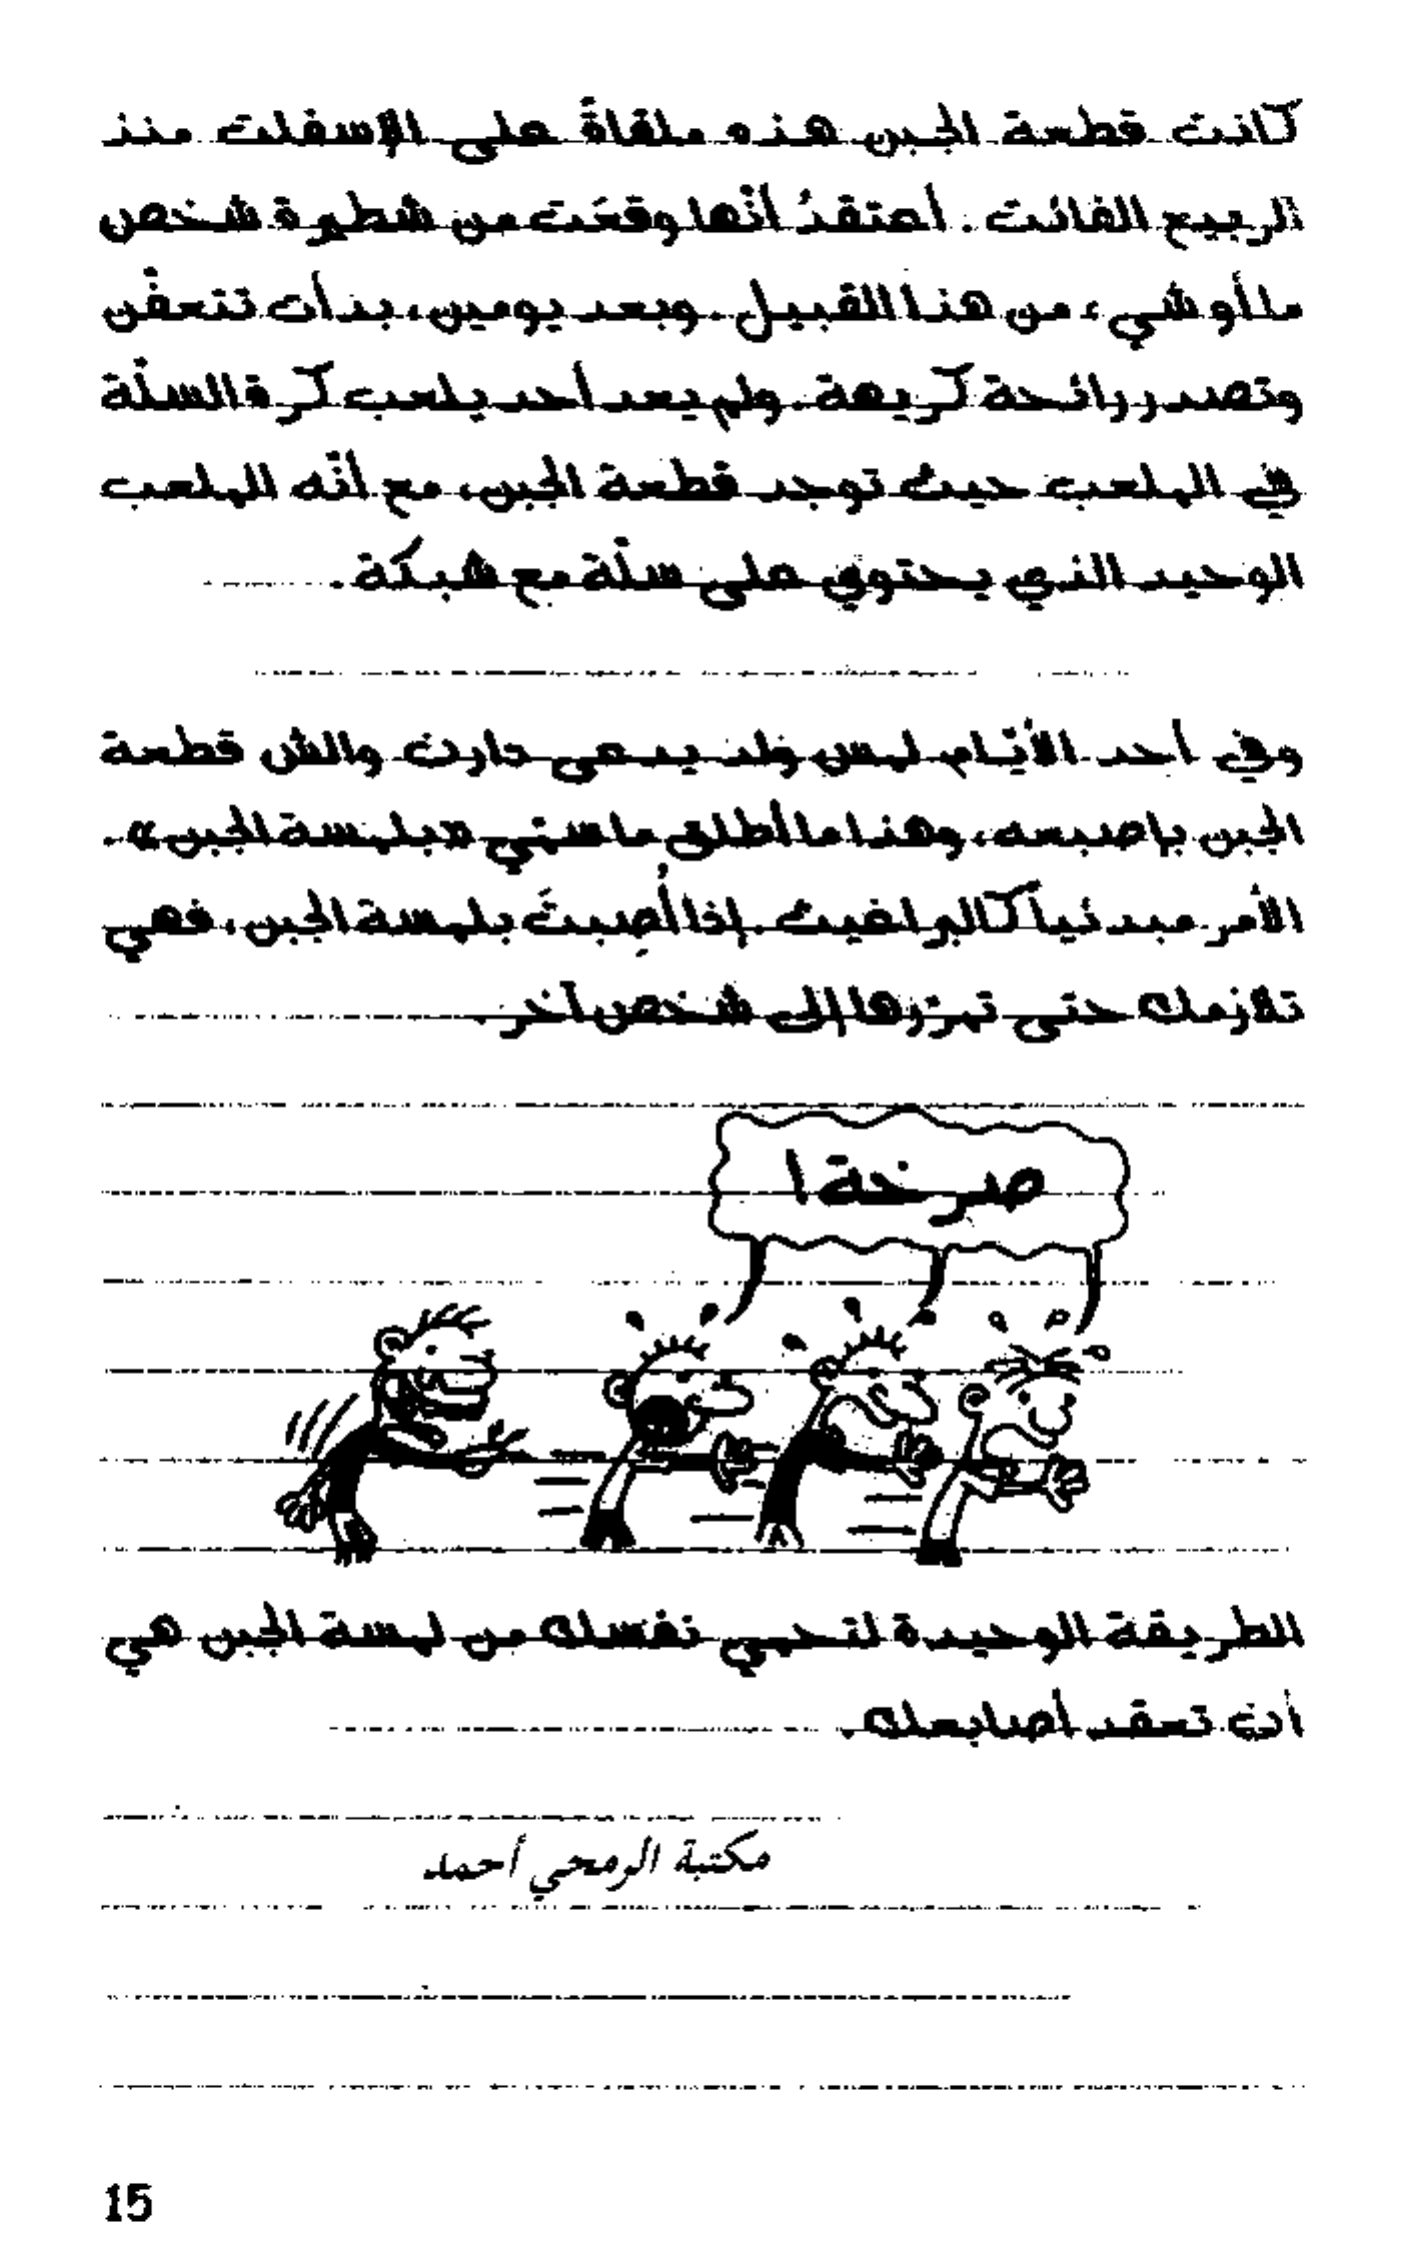 كانت قطعة الجبن هذه ملقاةً على الإسفلت منذ
الربيع الفائت. أعتقدُ أنّها وقعَت من شطيرة شخص
ما أو شيء من هذا القبيل. وبعد يومين، بدأت تتعفّن
وتصدر رائحة كريهة. ولم يعد أحد يلعب كرة السلّة
في الملعب حيث توجد قطعة الجبن، مع أنّه الملعب
الوحيد الذي يحتوي على سلّة مع شبكة.
وفي أحد الأيّام لمس ولد يدعى دارن والش قطعة
الجبن بإصبعه، وهذا ما أطلق ما سمّي «بلمسة الجبن».
الأمر مبدئياً كالبراغيث. إذا أُصِبتَ بلمسة الجبن، فهي
تلازمك حتى تمرّرها إلى شخص آخر.
صرخة!
الطريقة الوحيدة لتحمي نفسك من لمسة الجبن هي
أن تعقد أصابعك.
مكتبة الرمحي أحمد
15